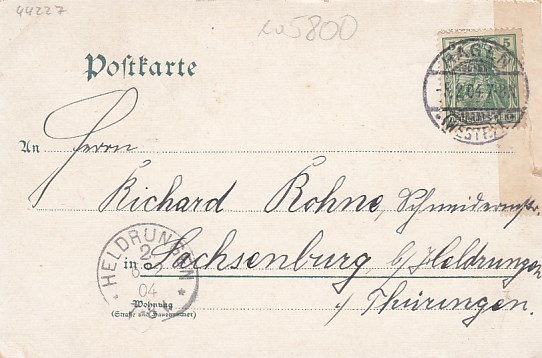 44227
5800
Postkarte
5
HAGEN
(WESTF.)
An Herrn
Richard Rohne, Schmiedemstr.
in Sachsenburg b/Heldrungen
i/ Thüringen.
HELDRUNGEN
04
Wohnung
(Straße und Hausnummer)